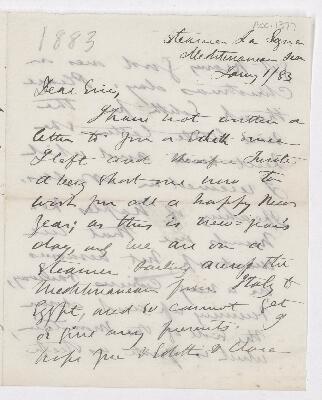 1883
Acc. 1377
Steamer La Signa
Mediterranean Sea
Jany 1/83
Dear Eric,
I have not written a
letter to you or Edith since
I left and therefore write
a very short one now to
wish you all a happy New
Year; as this is new-year's
day, and we are on a
steamer sailing along the
Mediterranean from Italy to
Egypt, and so cannot get
or give any presents. I
hope you & Edith & Clara